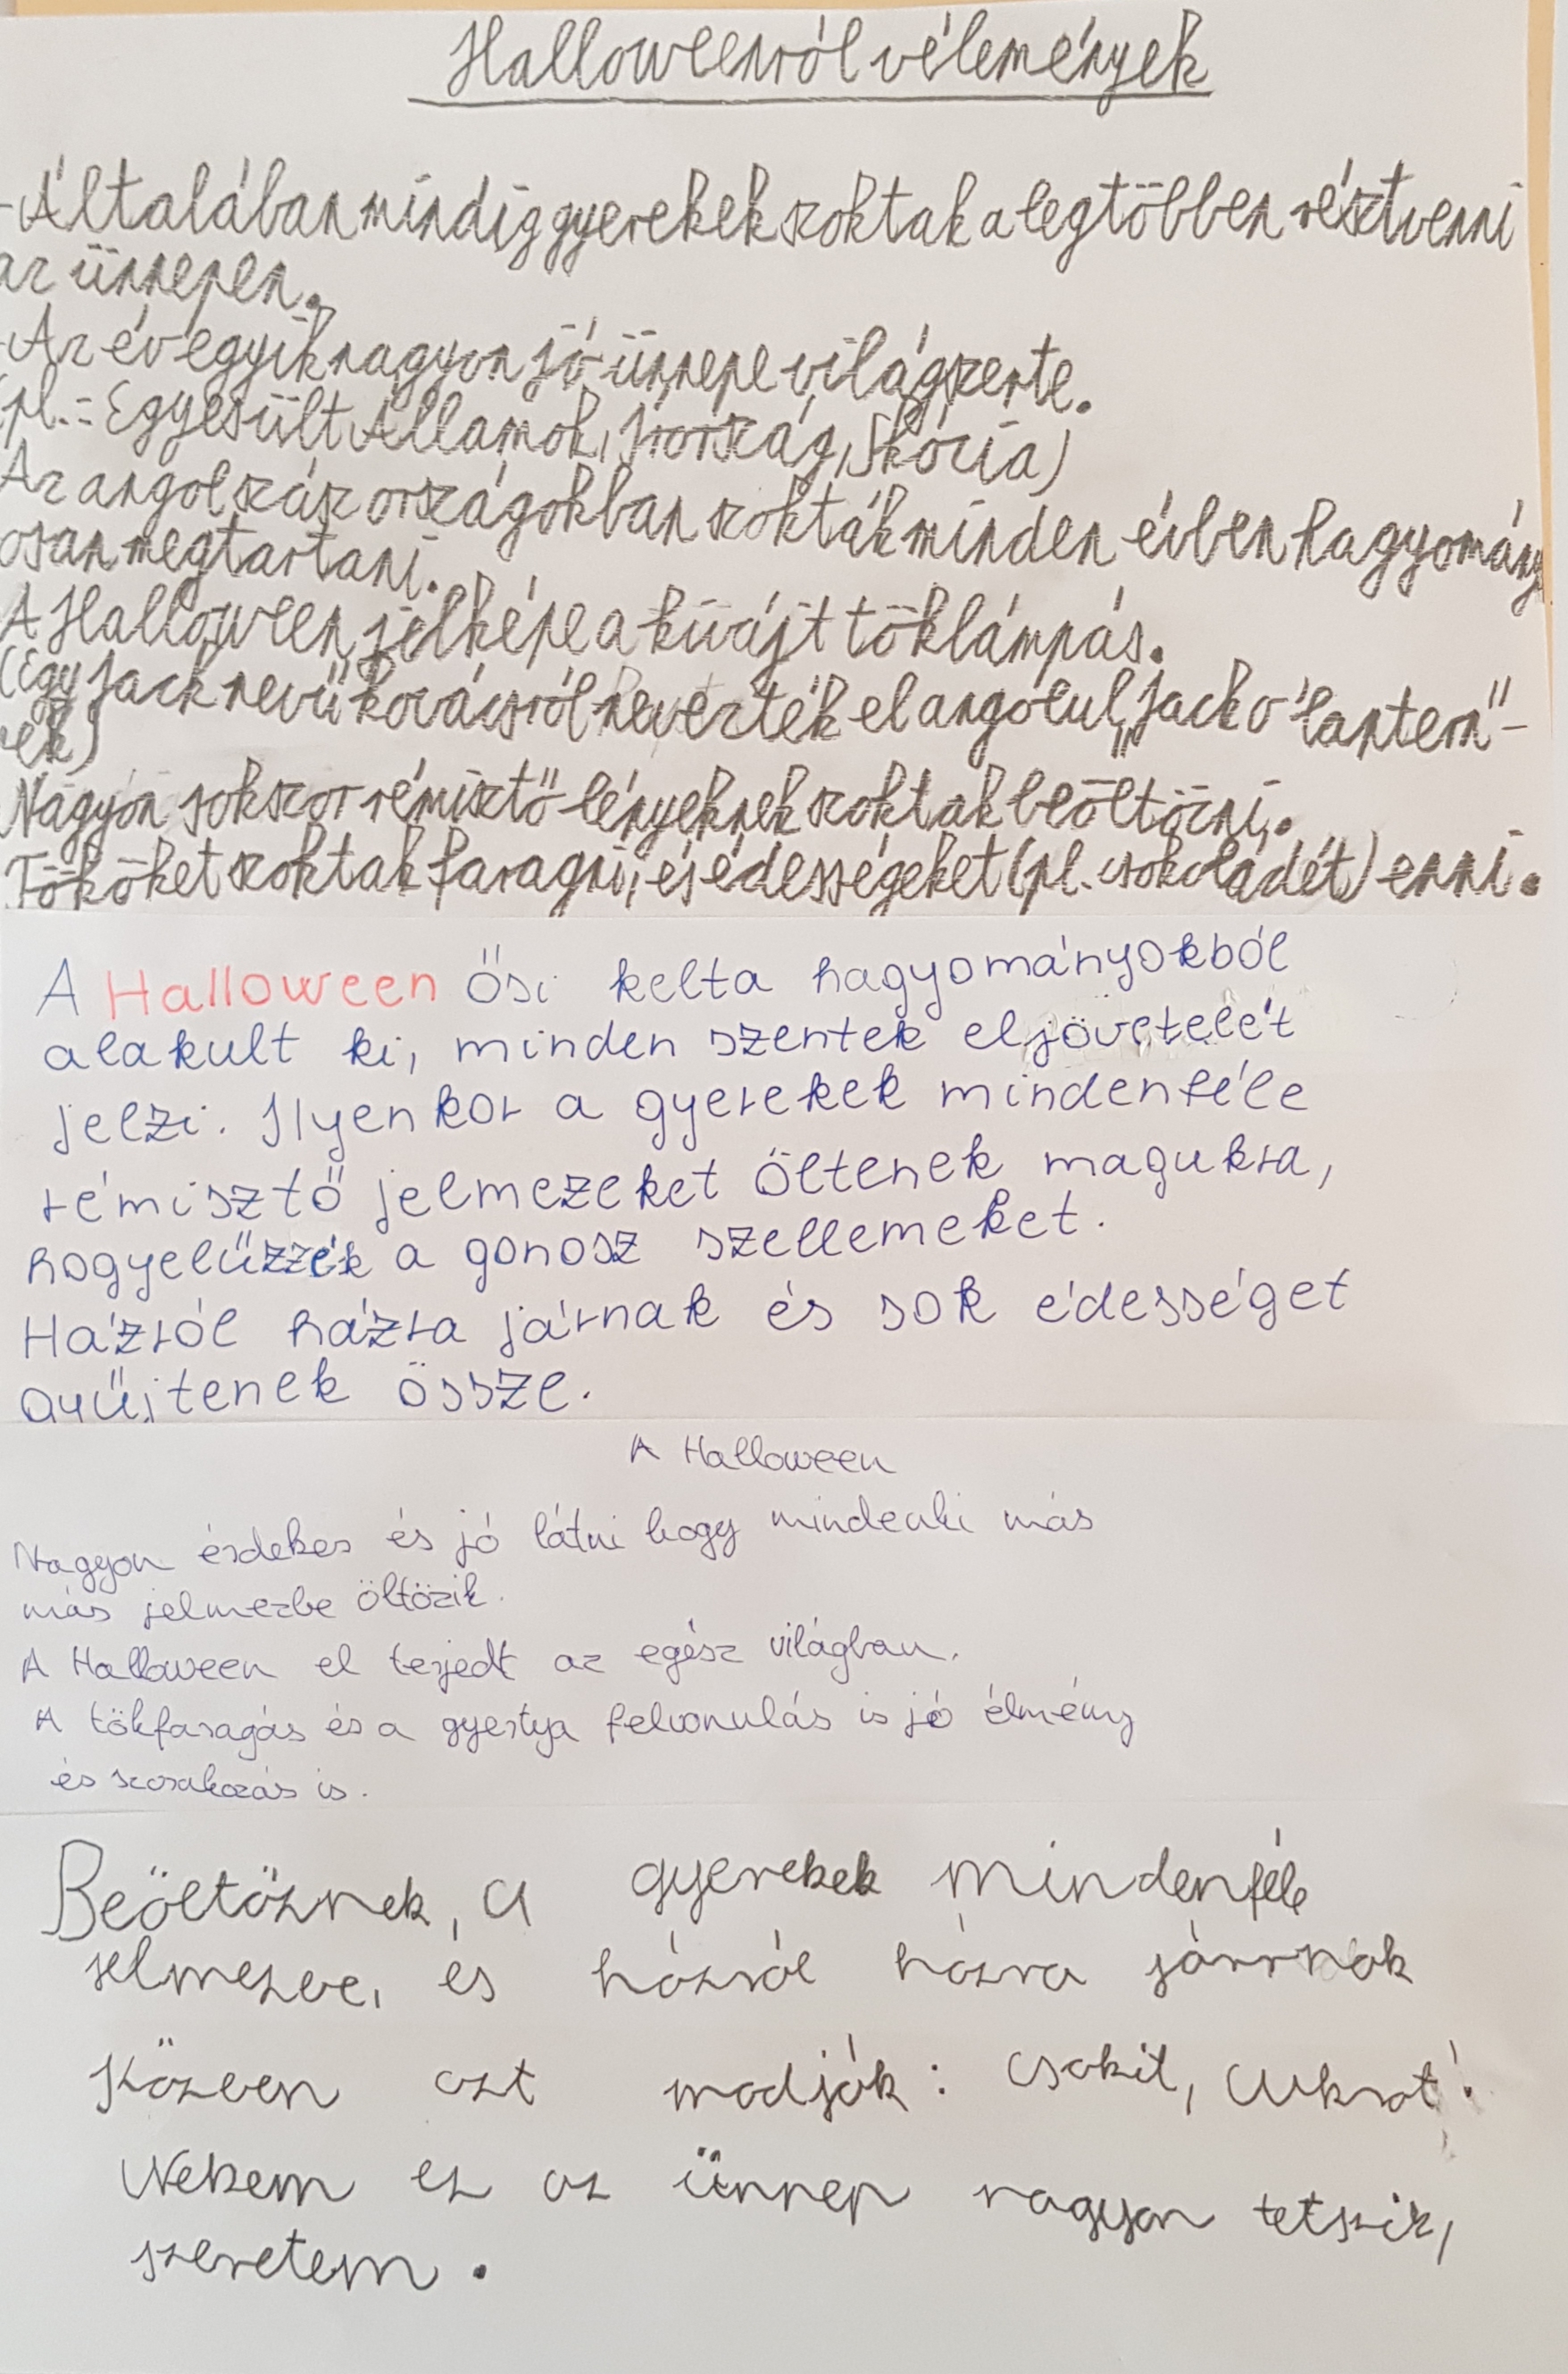 Halloweenról vélemények
-Általában mindig gyerekek szoktak a legtöbben résztvenni
az ünnepen.
-Az év egyik nagyon jó ünnepe világszerte.
(pl.: Egyesült Államok, Írország, Skócia)
Az angolszász országokban szokták minden évben hagyomány
osan megtartani.
A Halloween jelképe a kivájt töklámpás.
(Egy Jack nevű kovácsról nevezték el angolul „Jack o' lantern"-
nek)
Nagyon sokszor rémisztő lényeknek szoktak beöltözni.
Tököket szoktak faragni, és édességeket (pl. csokoládét) enni.
A Halloween ősi kelta hagyományokból
alakult ki, minden szentek eljövetelét
jelzi. Ilyenkor a gyerekek mindenféle
rémisztő jelmezeket öltenek magukra,
hogyelűzzék a gonosz szellemeket.
Házról házra járnak és sok édességet
gyűjtenek össze.
A Halloween
Nagyon érdekes és jó látni hogy mindenki más
más jelmezbe öltözik.
A Halloween el terjedt az egész világban.
A tökfaragás és a gyertya felvonulás is jó élmény
és szorakozás is.
Beöltöznek, a gyerekek mindenféle
jelmezbe, és házról házra járnak
Közben azt modják: Csokit, Cukrot!
Nekem ez az ünnep nagyon tetszik,
szeretem.